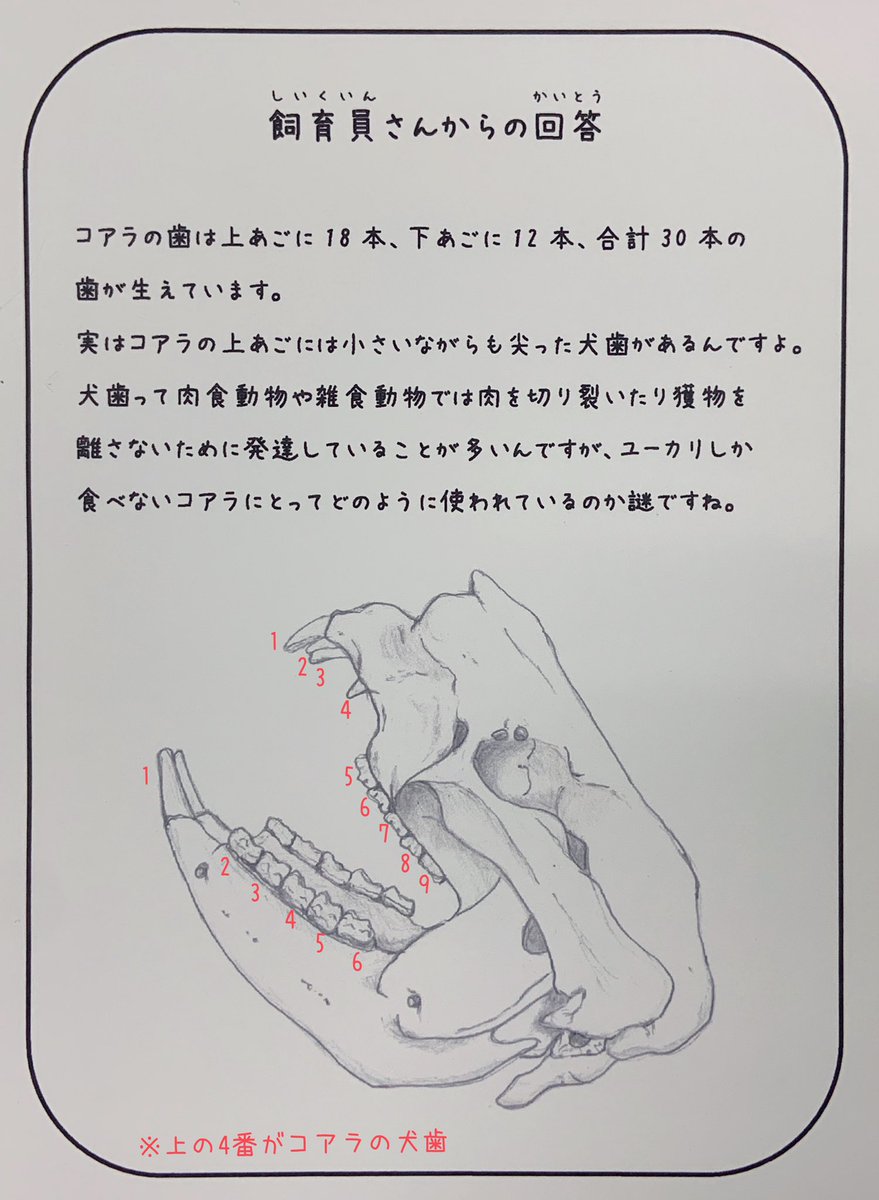 しいくいん かいとう
飼育員さんからの回答
コアラの歯は上あごに18本、下あごに12本、合計30本の
歯が生えています。
実はコアラの上あごには小さいながらも尖った犬歯があるんですよ。
犬歯って肉食動物や雑食動物では肉を切り裂いたり獲物を
離さないために発達していることが多いんですが、ユーカリしか
食べないコアラにとってどのように使われているのか謎ですね。
1
2
3
4
5
6
7
8
9
1
2
3
4
5
6
※上の4番がコアラの犬歯